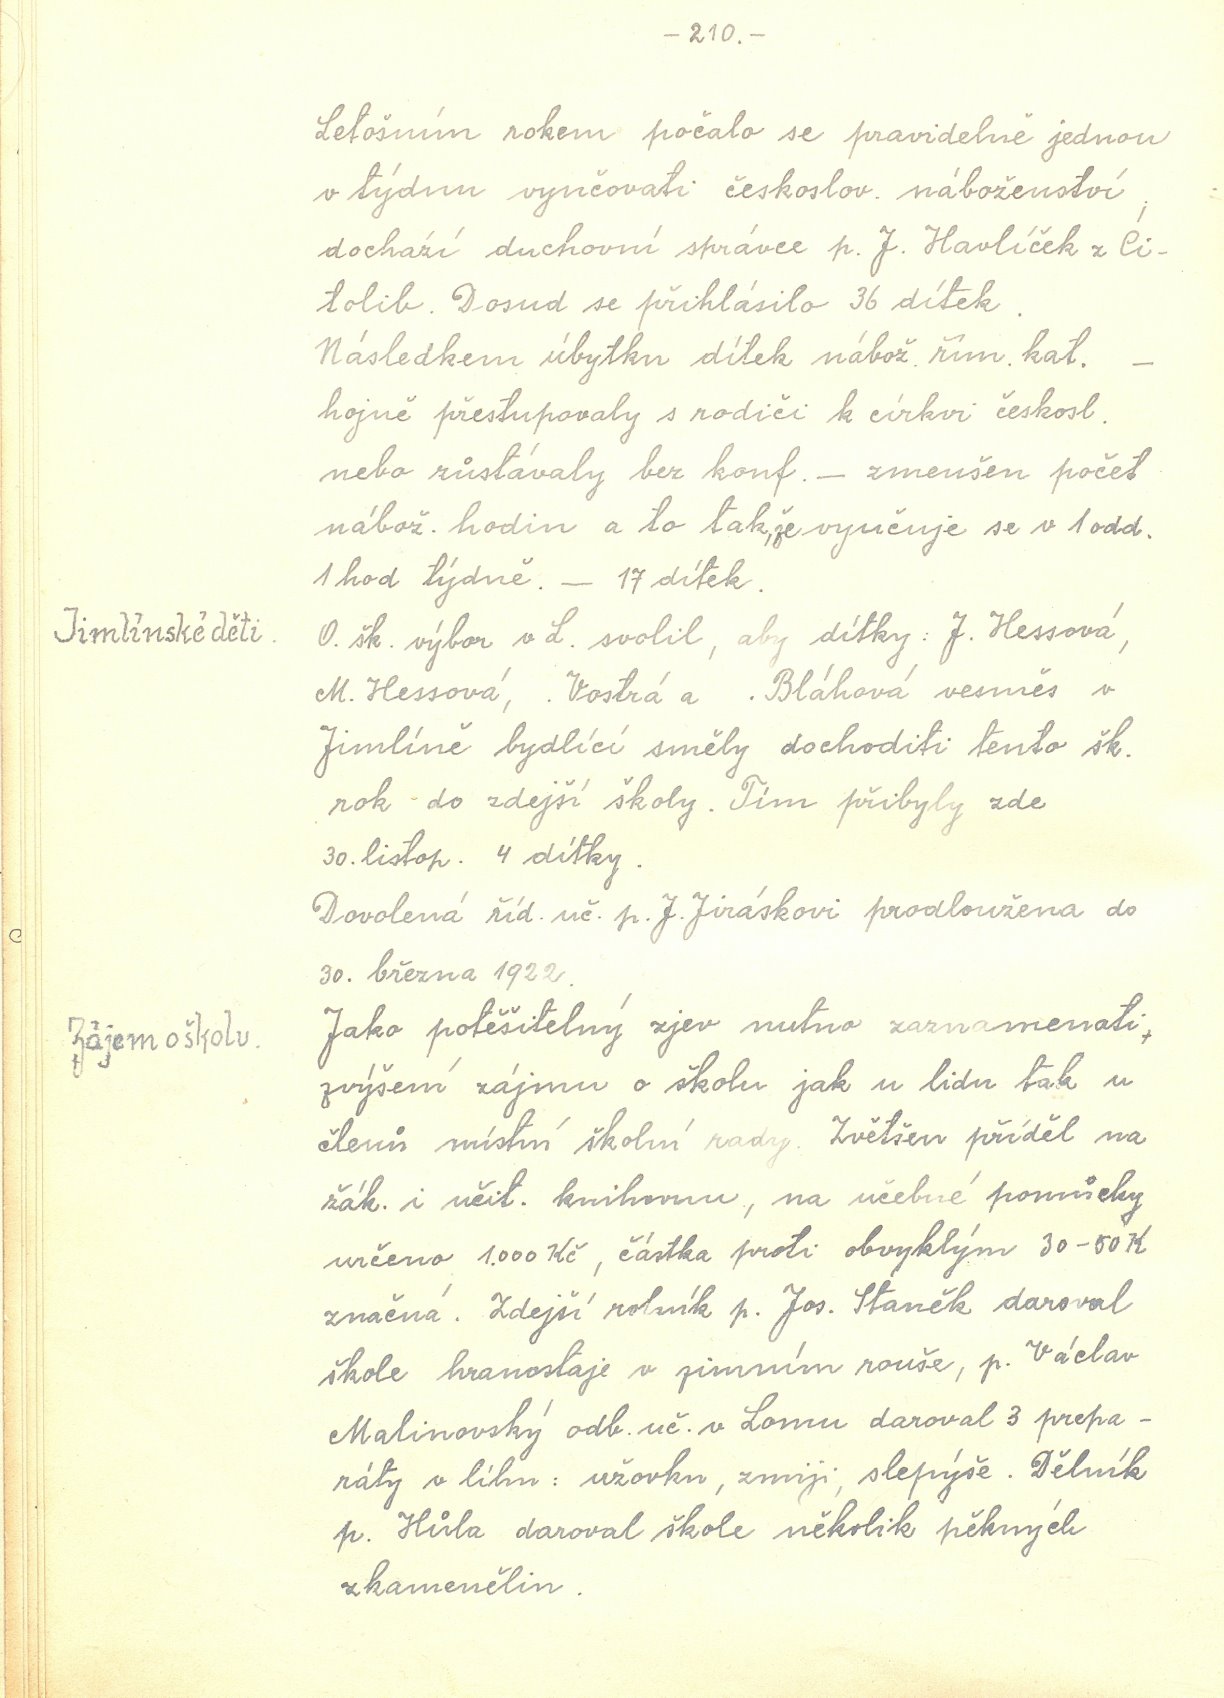 – 210. –
Letošním rokem počalo se pravidelně jednou
v týdnu vyučovati českoslov. náboženství,
dochází duchovní správce p. J. Havlíček z Ci-
tolib. Dosud se přihlásilo 36 dítek.
Následkem úbytku dítek nábož. řím. kat. –
hojně přestupovaly s rodiči k církvi českosl.
nebo zůstávaly bez konf. – zmenšen počet
nábož. hodin a to tak, že vyučuje se v 1 odd.
1 hod týdně. – 17 dítek.
Jimlínské děti.
O. šk. výbor v L. svolil, aby dítky: J. Hessová,
M. Hessová, . Vostrá a . Bláhová vesměs v
Jimlíně bydlící směly dochoditi tento šk.
rok do zdejší školy. Tím přibyly zde
30. listop. 4 dítky.
Dovolená říd. uč. p. J. Jiráskovi prodloužena do
30. března 1922.
Zájem o školu.
Jako potěšitelný zjev nutno zaznamenati
zvýšení zájmu o školu jak u lidu tak u
členů místní školní rady. Zvětšen příděl na
žák. i učit. knihovnu, na učebné pomůcky
určeno 1.000 Kč, částka proti obvyklým 30–50 K
značná. Zdejší rolník p. Jos. Staněk daroval
škole hranostaje v zimním rouše, p. Václav
Malinovský odb. uč. v Lomu daroval 3 prepa-
ráty v lihu: užovku, zmiji, slepýše. Dělník
p. Hůla daroval škole několik pěkných
zkamenělin.